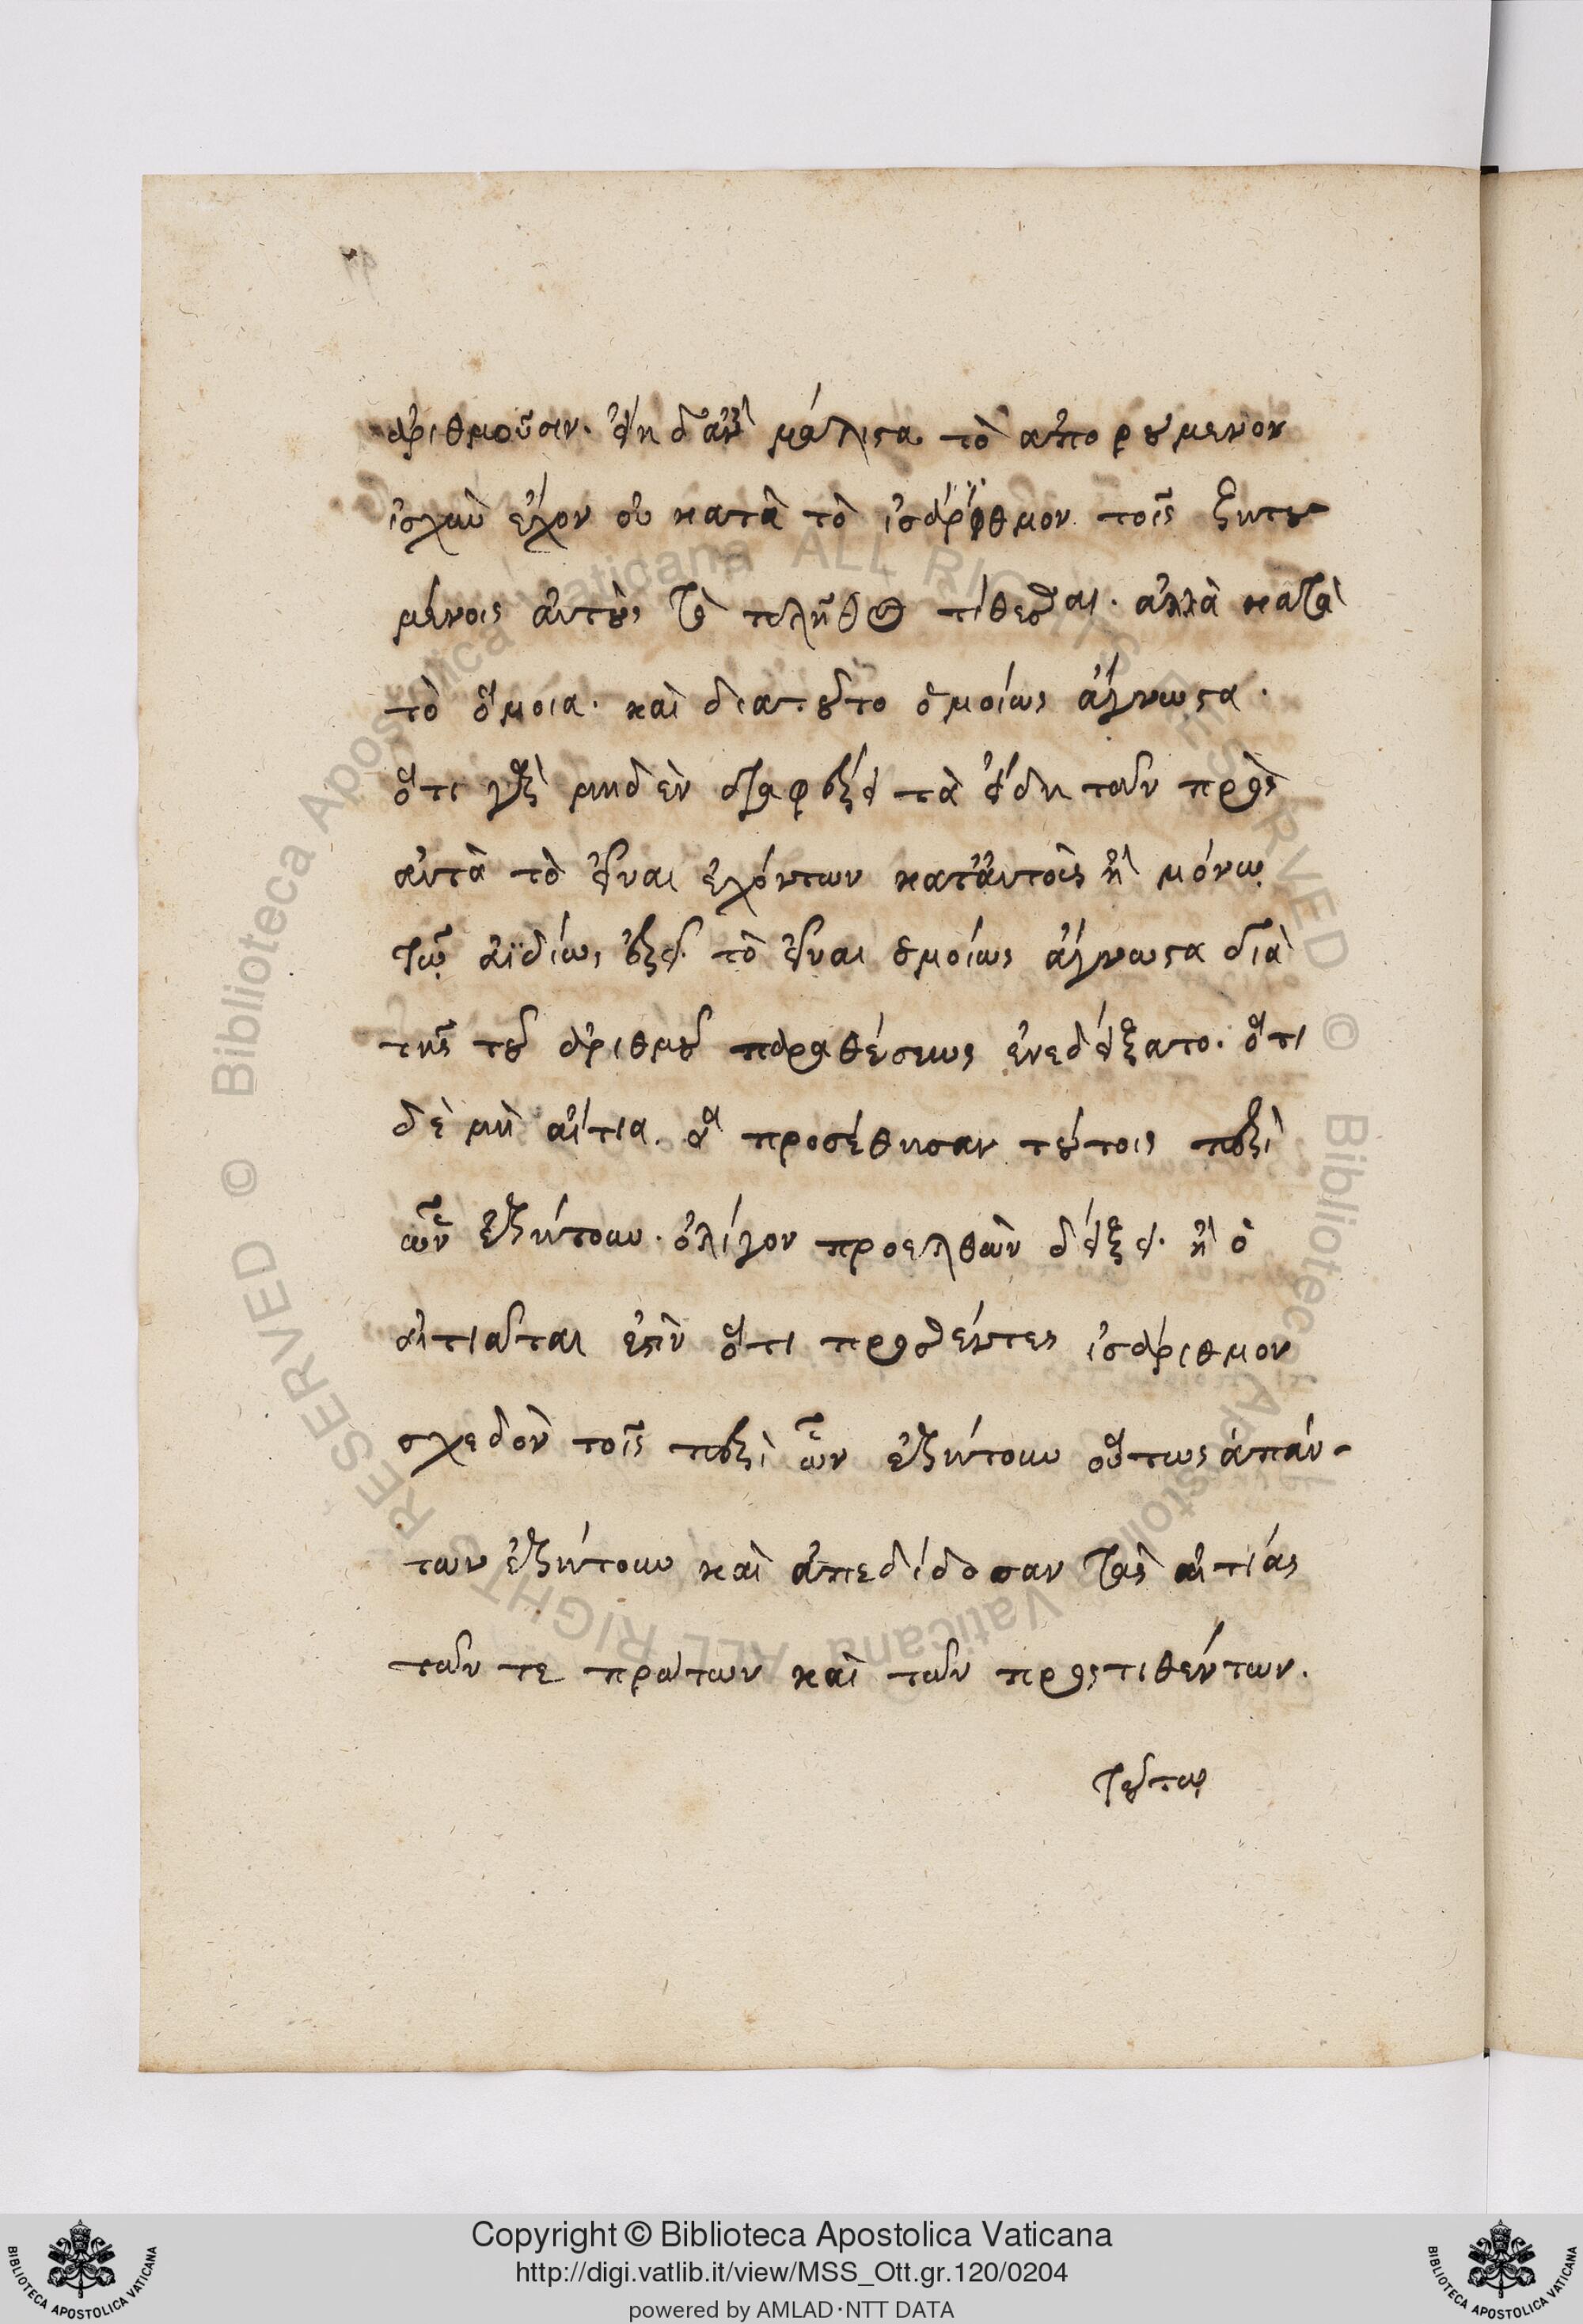 ἀριθμοῦσιν. εἴη δ' ἂν μάλιστα τὸ ἀπορούμενον
ἰσχὺν ἔχον οὐ κατὰ τὸ ἰσάριθμον τοῖς ζητου
μένοις αὐτοὺς τὸ πλῆθος τίθεσθαι. ἀλλὰ κατὰ
τὸ ὅμοια. καὶ διατοῦτο ὁμοίως ἄγνωστα.
ὅτι γὰρ μηδὲν διαφέρει τὰ εἴδη τῶν πρὸς
αὐτὰ τὸ εἶναι ἐχόντων κατ' αὐτοὺς ἢ μόνῳ
τῷ ἀϊδίως ἔχειν τὸ εἶναι ὁμοίως ἄγνωστα διὰ
τῆς τοῦ ἀριθμοῦ παραθέσεως ἐνεδείξατο. ὅτι
δὲ μὴ αἴτια. ἃ προσέθησαν τούτοις περὶ
ὧν ἐζήτουν. ὀλίγον προελθὼν δείξει. ἢ ὃ
αἰτιᾶται ἐστὶν ὅτι προσθέντες ἰσάριθμον
σχεδὸν τοῖς περὶ ὧν ἐζήτουν οὕτως ἁπάν-
των ἐζήτουν καὶ ἀπεδίδοσαν τὰς αἰτίας
τῶν τε πρώτων καὶ τῶν προστιθέντων.
τούτῳ
Copyright © Biblioteca Apostolica Vaticana
http://digi.vatlib.it/view/MSS_Ott.gr.120/0204
powered by AMLAD·NTT DATA